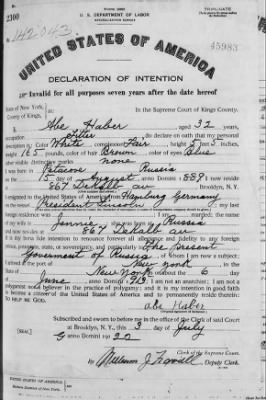 U. S. DEPARTMENT OF LABOR
TRIPLICATE
2300
142243
45983
UNITED STATES OF AMERICA
DECLARATION OF INTENTION
Invalid for all purposes seven years after the date hereof
State of New York,
County of Kings,
In the Supreme Court of Kings County.
I, Abe Haber aged 32 years,
occupation do declare on oath that my personal
description is: Color White, complexion Fair, height 5 feet 5 inches,
weight 165 pounds, color of hair Brown, color of eyes Blue
other visible distinctive marks none
I was born in Russia
on the 15 day of August, anno Domini 1889; I now reside
at 867 DeKalb av, Brooklyn, N. Y.
I emigrated to the United States of America from Hamburg Germany
on the vessel President Lincoln; my last
foreign residence was Russia; I am married; the name
of my wife is Jennie; she was born at Russia
and now resides at 867 DeKalb av
It is my bona fide intention to renounce forever all allegiance and fidelity to any foreign
prince, potentate, state, or sovereignty, and particularly to The present
Government of Russia, of whom I am now a subject;
I arrived at the port of New York, in the
State of New York on or about the 6 day
of June, anno Domini 1913; I am not an anarchist; I am not a
polygamist nor a believer in the practice of polygamy; and it is my intention in good faith
to become a citizen of the United States of America and to permanently reside therein:
SO HELP ME GOD.
Abe Haber
Subscribed and sworn to before me in the office of the Clerk of said Court
at Brooklyn, N. Y., this 3 day of July
[SEAL] anno Domini 1922
Clerk of the Supreme Court.
By William J., Deputy Clerk.